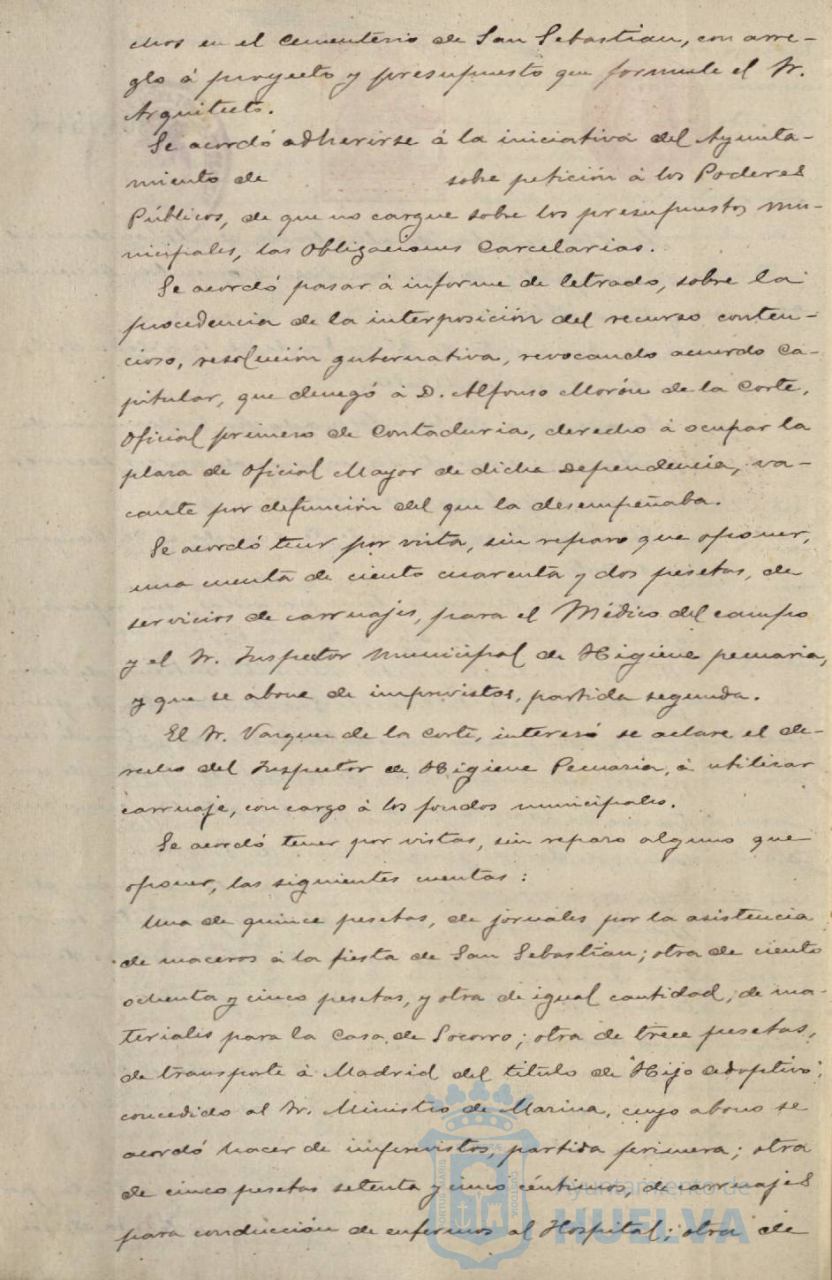 chos en el Cementerio de San Sebastian, con arre-
glo á proyecto y presupuesto que formule el Sr.
Arquitecto.
Se acordó adherirse á la iniciativa del Ayunta-
miento de sobre petición á los Poderes
Públicos, de que no cargue sobre los presupuestos mu-
nicipales, las Obligaciones Carcelarias.
Se acordó pasar á informe de letrado, sobre la
procedencia de la interposición del recurso conten-
cioso, resolución gubernativa, revocando acuerdo Ca-
pitular, que denegó á D. Alfonso Morón de la Corte,
Oficial primero de Contaduria, derecho á ocupar la
plaza de Oficial Mayor de dicha dependencia, va-
cante por defunción del que la desempeñaba.
Se acordó tener por vista, sin reparo que oponer,
una cuenta de ciento cuarenta y dos pesetas, de
servicios de carruajes, para el Médico del campo
y el Sr. Inspector municipal de Higiene pecuaria,
y que se abone de imprevistos, partida segunda.
El Sr. Vazquez de la Corte, interesó se aclare el de-
recho del Inspector de Higiene Pecuaria, á utilizar
carruaje, con cargo á los fondos municipales.
Se acordó tener por vistas, sin reparo alguno que
oponer, las siguientes cuentas:
Una de quince pesetas, de jornales por la asistencia
de maceros á la fiesta de San Sebastian; otra de ciento
ochenta y cinco pesetas, y otra de igual cantidad, de ma-
teriales para la Casa de Socorro; otra de trece pesetas,
de transporte á Madrid del titulo de "Hijo adoptivo",
concedido al Sr. Ministro de Marina, cuyo abono se
acordó hacer de imprevistos, partida primera; otra
de cinco pesetas setenta y cinco céntimos, de carruajes
para conducción de enfermos al Hospital; otra de
Ayuntamiento de
HUELVA